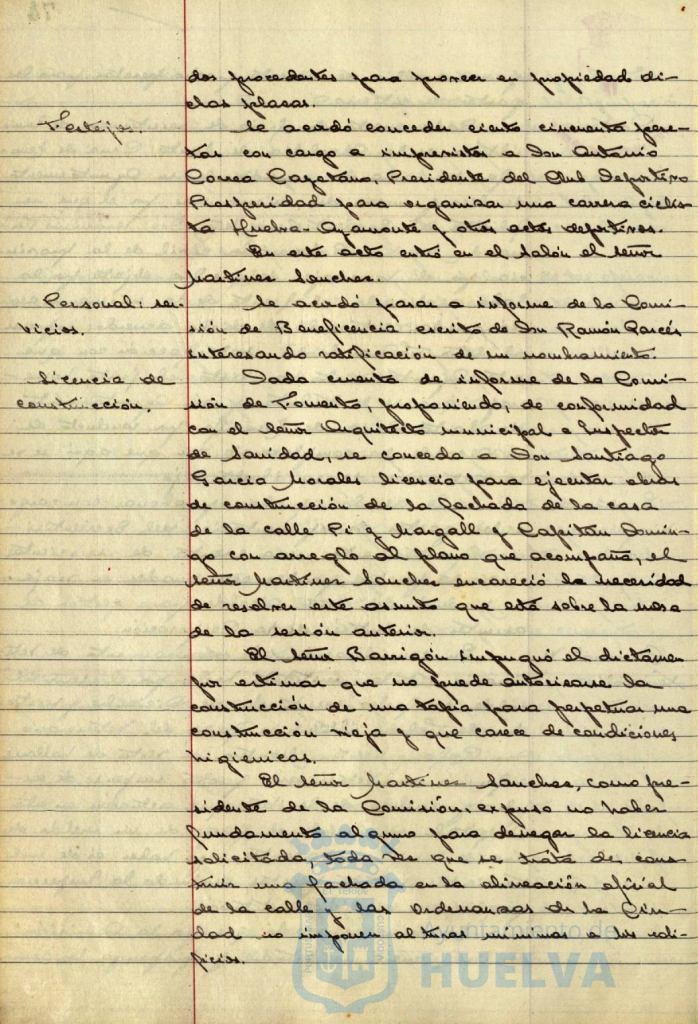 dos procedentes para proveer en propiedad di-
chas plazas.
Festejos.
Se acordó conceder ciento cincuenta pese-
tas con cargo a imprevistos a Don Antonio
Correa Cayetano, Presidente del Club Deportivo
Prosperidad para organizar una carrera ciclis-
ta Huelva-Ayamonte y otros actos deportivos.
En este acto entró en el Salón el Señor
Martínez Sanchez.
Personal: ser-
vicios.
Se acordó pasar a informe de la Comi-
sión de Beneficencia escrito de Don Ramón Garcés
interesando ratificación de un nombramiento.
Licencia de
construcción.
Dada cuenta de informe de la Comi-
sión de Fomento, proponiendo, de conformidad
con el Señor Arquitecto municipal e Inspector
de Sanidad, se conceda a Don Santiago
Garcia Morales licencia para ejecutar obras
de construcción de la fachada de la casa
de la calle Pi y Margall y Capitán Domin-
go con arreglo al plano que acompaña, el
Señor Martínez Sanchez encareció la necesidad
de resolver este asunto que está sobre la mesa
de la sesión anterior.
El Señor Barrigón impugnó el dictamen
por estimar que no puede autorizarse la
construcción de una tapia para perpetuar una
construcción vieja y que carece de condiciones
higienicas.
El Señor Martínez Sanchez, como pre-
sidente de la Comisión, expuso no haber
fundamento alguno para denegar la licencia
solicitada, toda vez que se trata de cons-
truir una fachada en la alineación oficial
de la calle y las Ordenanzas de la Ciu-
dad no imponen alturas minimas a los edi-
ficios.
Ayuntamiento de
HUELVA